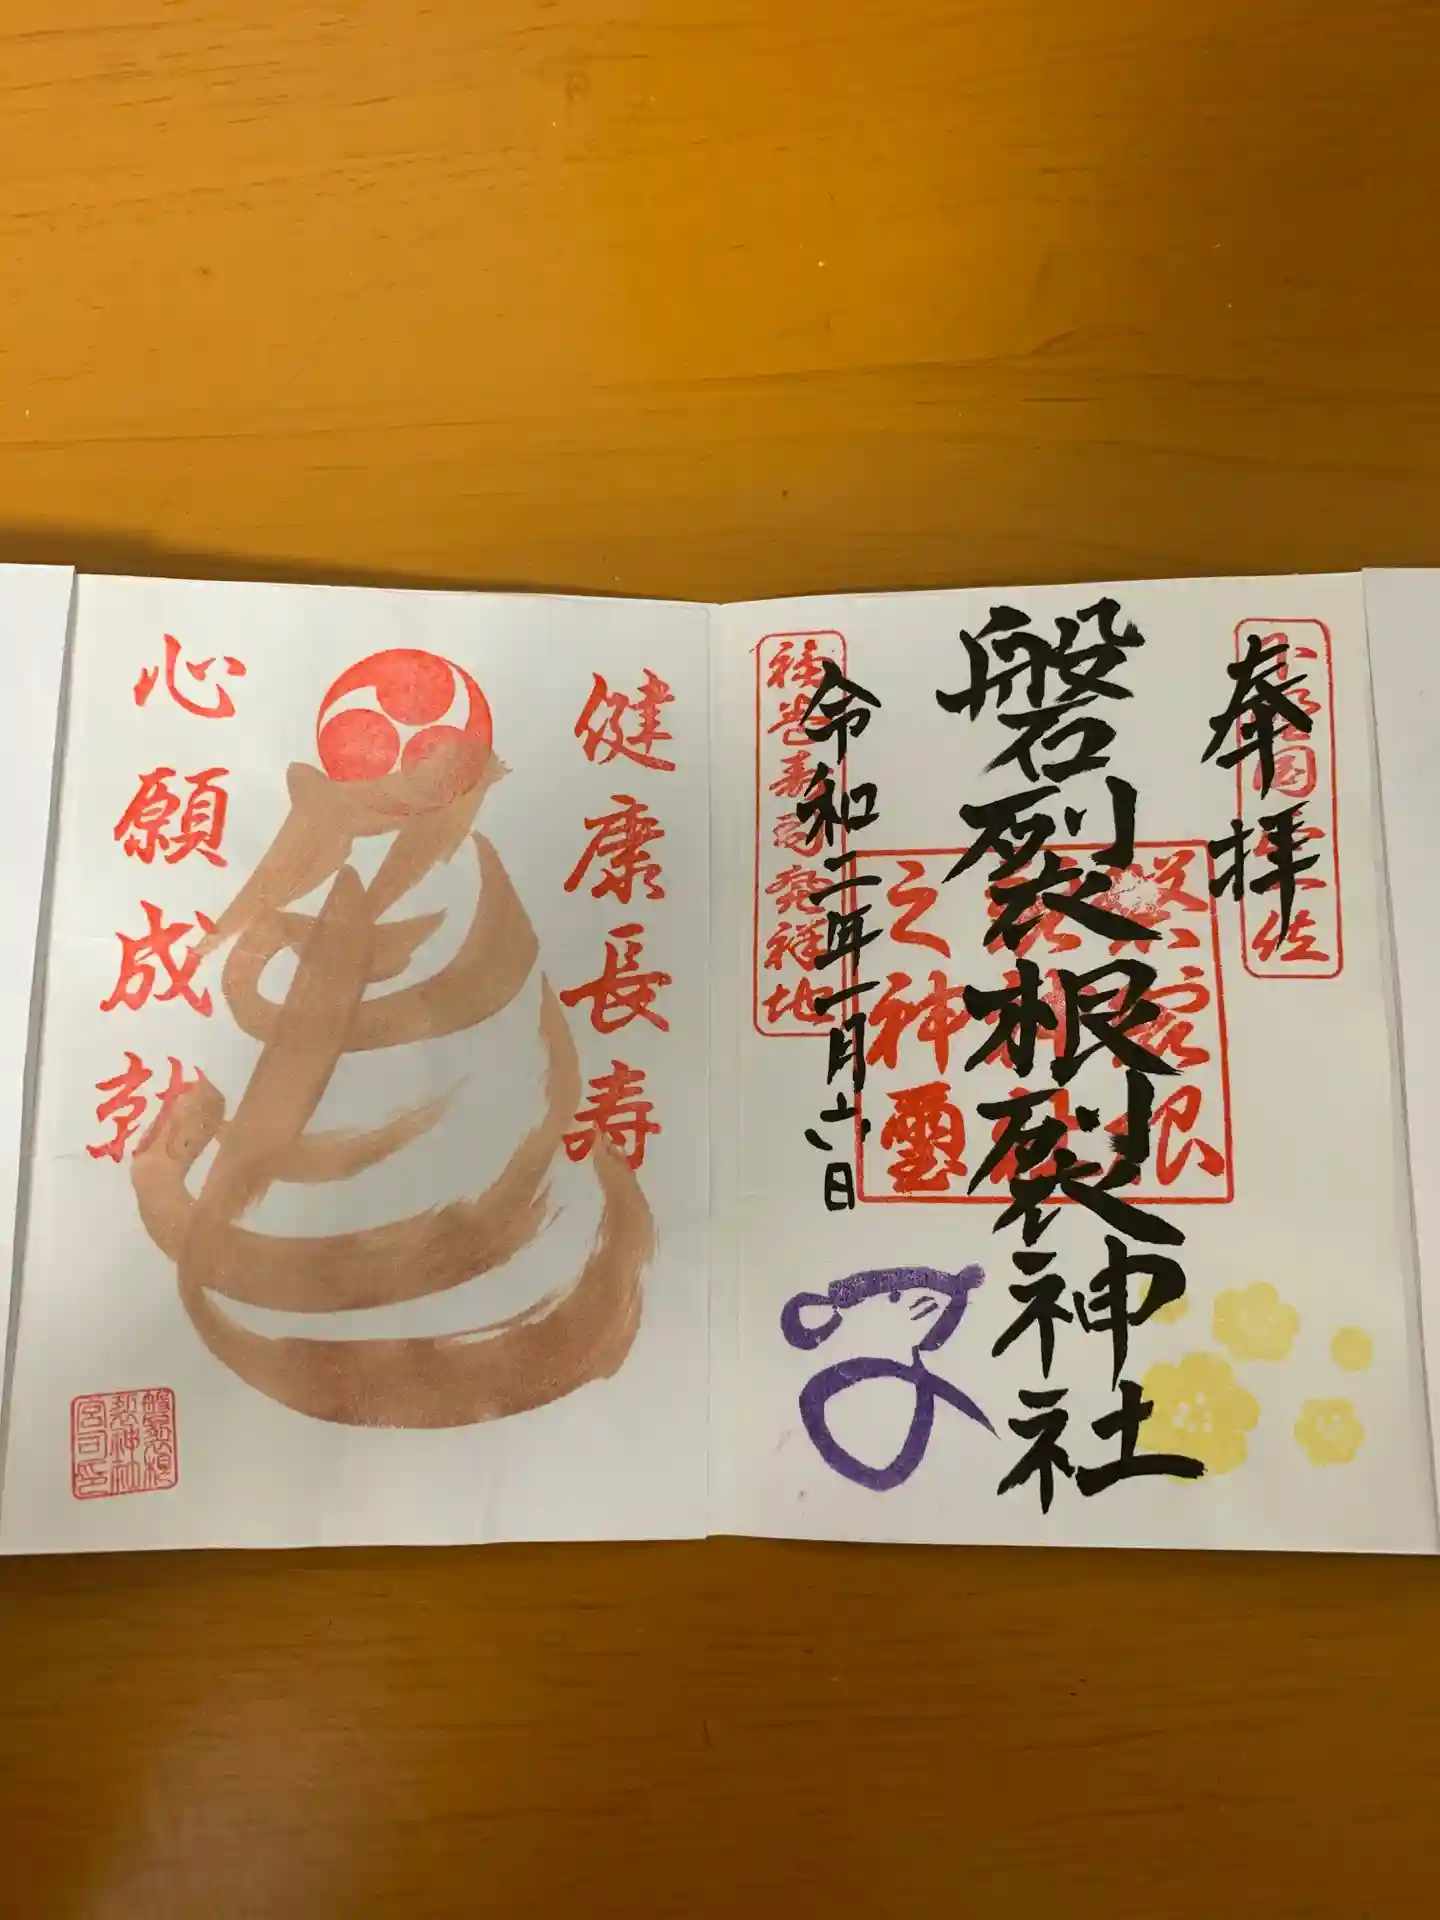 奉拝
磐裂根裂神社
令和二年一月六日
之神璽
福巻寿司発祥地
健康長寿
心願成就
磐裂根
裂神社
宮司印